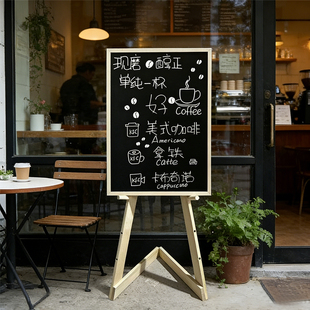 现磨 醇正
单纯一杯
好
Coffee
美式咖啡
Americano
拿铁
Catte
卡布奇诺
cappuccino